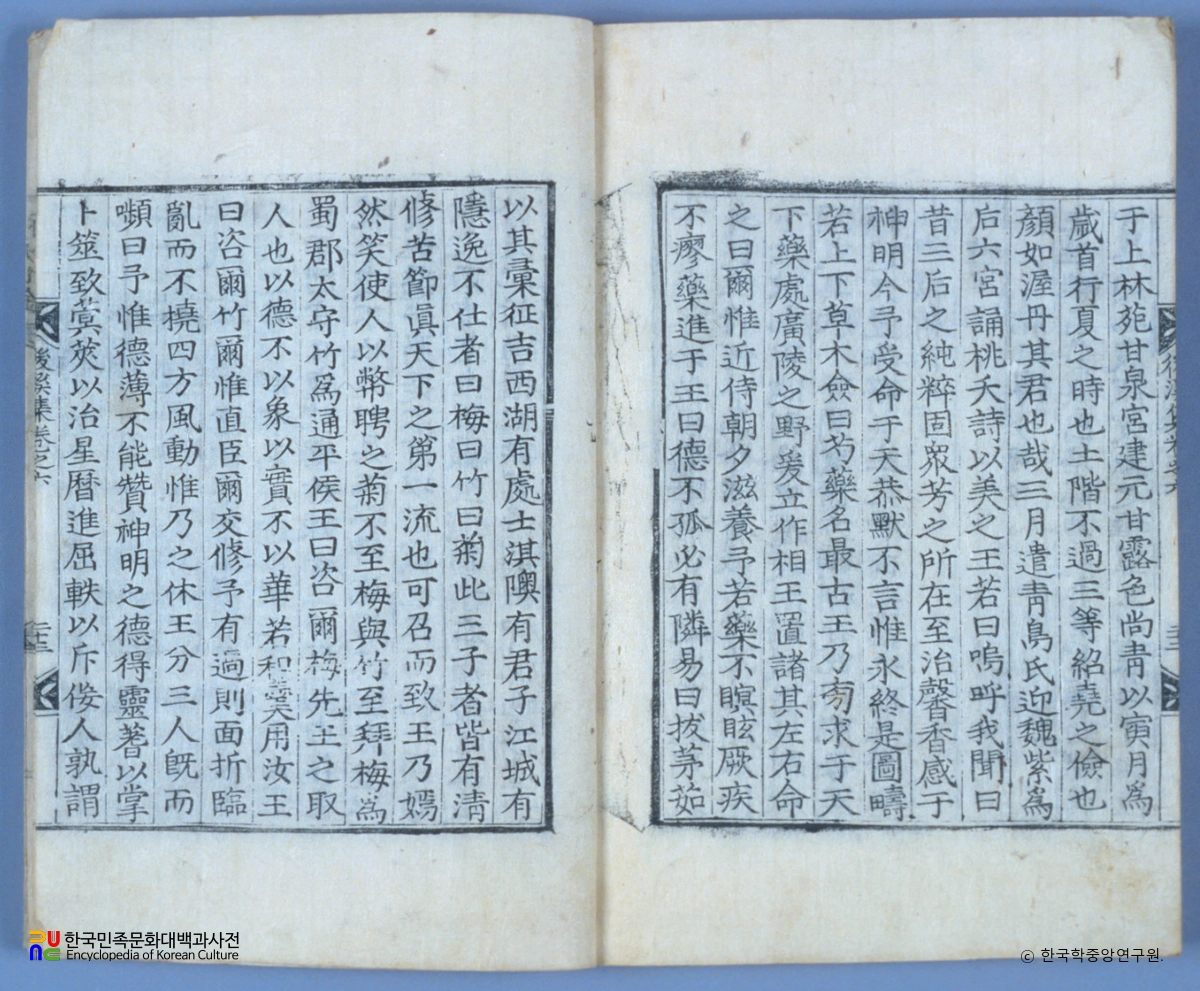 于上林苑甘泉宮建元甘露色尚靑以寅月爲
歲首行夏之時也土階不過三等紹堯之儉也
顔如渥丹其君也哉三月遣靑鳥氏迎魏紫爲
后六宮誦桃夭詩以美之王若曰嗚呼我聞曰
昔三后之純粹固衆芳之所在至治馨香感于
神明今予受命于天恭默不言惟永終是圖疇
若上下草木僉曰芍藥名最古王乃旁求于天
下藥處廣陵之野爰立作相王置諸其左右命
之曰爾惟近侍朝夕滋養予若藥不瞑眩厥疾
不瘳藥進于王曰德不孤必有隣易曰拔茅茹
以其彙征吉西湖有處士淇隩有君子江城有
隱逸不仕者曰梅曰竹曰菊此三子者皆有淸
修苦節眞天下之第一流也可召而致王乃嫣
然笑使人以幣聘之菊不至梅與竹至拜梅爲
蜀郡太守竹爲通平侯王曰咨爾梅先王之取
人也以德不以象以實不以華若和羹用汝王
曰咨爾竹爾惟直臣爾交修予有過則面折臨
亂而不撓四方風動惟乃之休王分三人旣而
嚬曰予惟德薄不能贊神明之德得靈蓍以掌
卜筮致蓂莢以治星曆進屈軼以斥佞人孰謂
後溪集卷之六
二十三
한국민족문화대백과사전
Encyclopedia of Korean Culture
© 한국학중앙연구원.